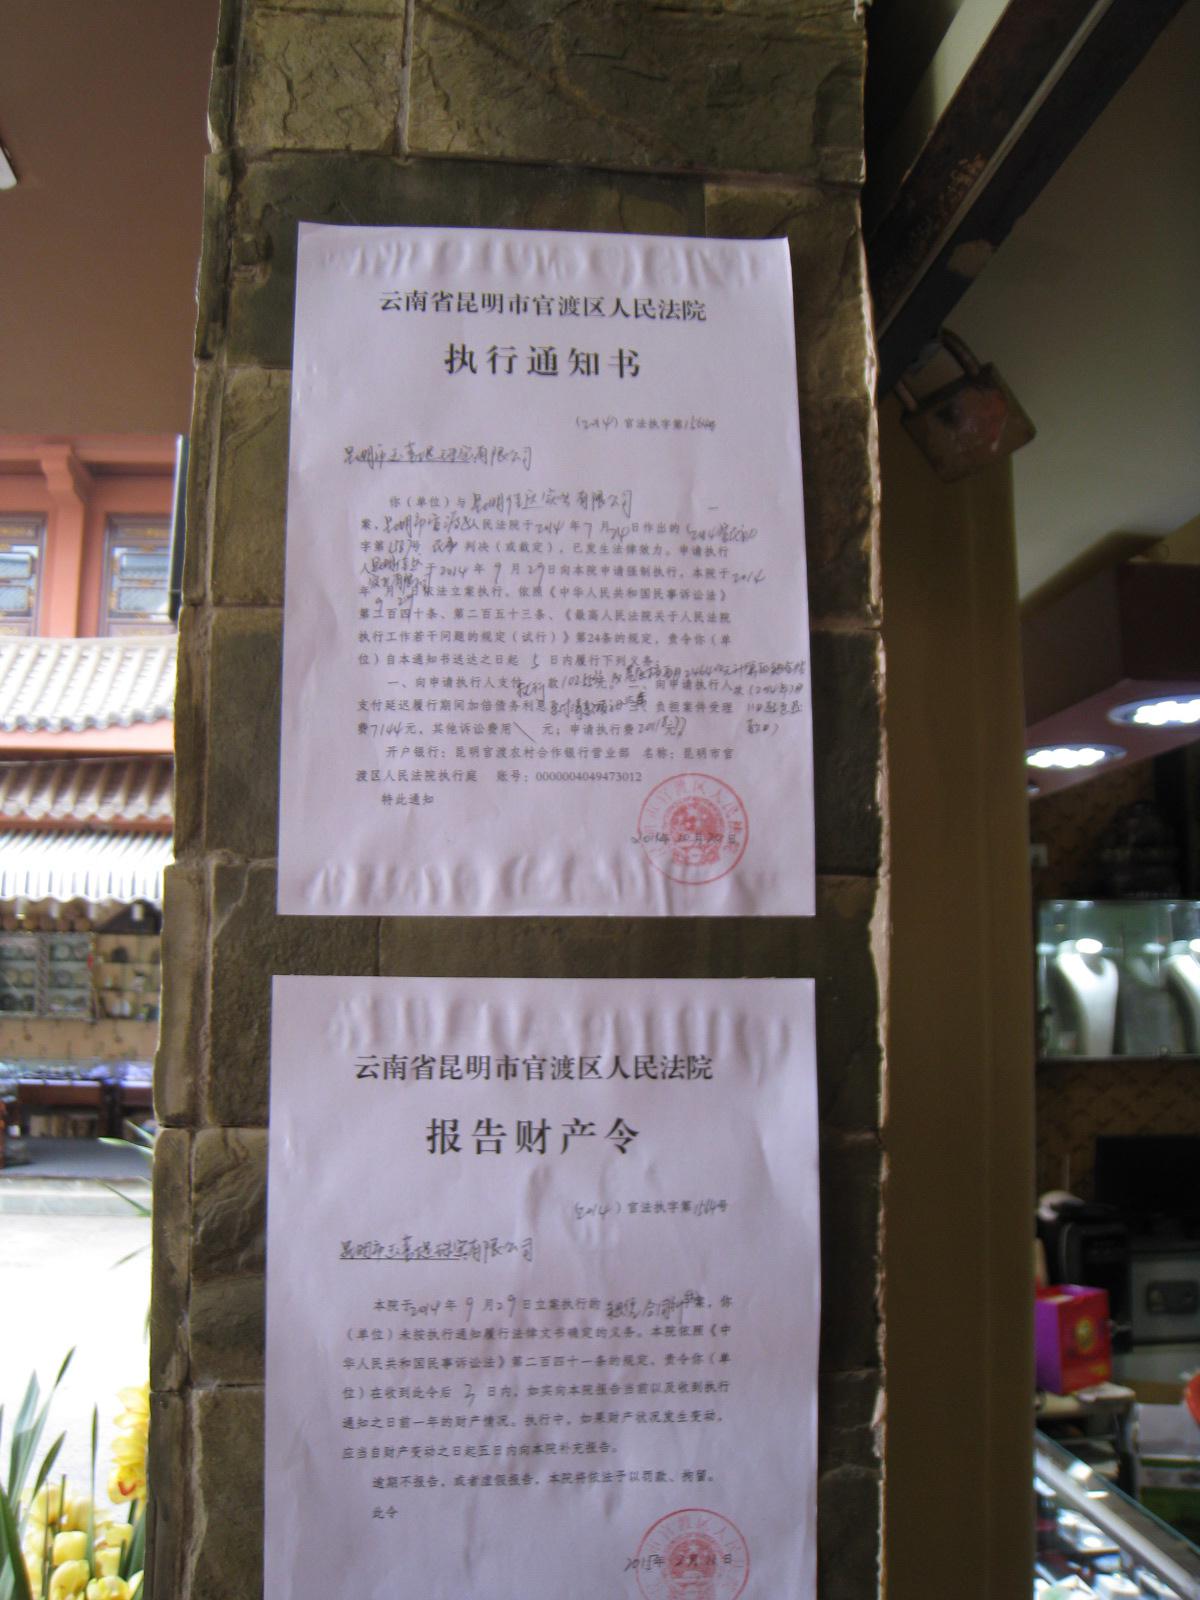 云南省昆明市官渡区人民法院
执行通知书
（2014）官法执字第1564号
昆明市玉喜缇珠宝有限公司
你（单位）与昆明佳庆实业有限公司 一
案，昆明市官渡区人民法院于2014年7月24日作出的
字第1587号民事判决（或裁定），已发生法律效力。申请执行
人 于2014年9月29日向本院申请强制执行。本院于2014
年9月29日依法立案执行。依照《中华人民共和国民事诉讼法》
第二百四十条、第二百五十三条、《最高人民法院关于人民法院
执行工作若干问题的规定（试行）》第24条的规定，责令你（单
位）自本通知书送达之日起5日内履行下列义务：
一、向申请执行人支付 款 元。 二、向申请执行人
支付延迟履行期间加倍债务利息 负担案件受理
费7144元，其他诉讼费用\元；申请执行费 元。
开户银行：昆明官渡农村合作银行营业部 名称：昆明市官
渡区人民法院执行庭 账号：0000004049473012
特此通知
年10月 日
云南省昆明市官渡区人民法院
报告财产令
（2014）官法执字第1564号
昆明市玉喜缇珠宝有限公司
本院于2014年9月29日立案执行的租赁合同纠纷案，你
（单位）未按执行通知履行法律文书确定的义务。本院依照《中
华人民共和国民事诉讼法》第二百四十一条的规定，责令你（单
位）在收到此令后3日内，如实向本院报告当前以及收到执行
通知之日前一年的财产情况。执行中，如果财产状况发生变动，
应当自财产变动之日起五日内向本院补充报告。
逾期不报告，或者虚假报告，本院将依法予以罚款、拘留。
此令
2015年2月 日